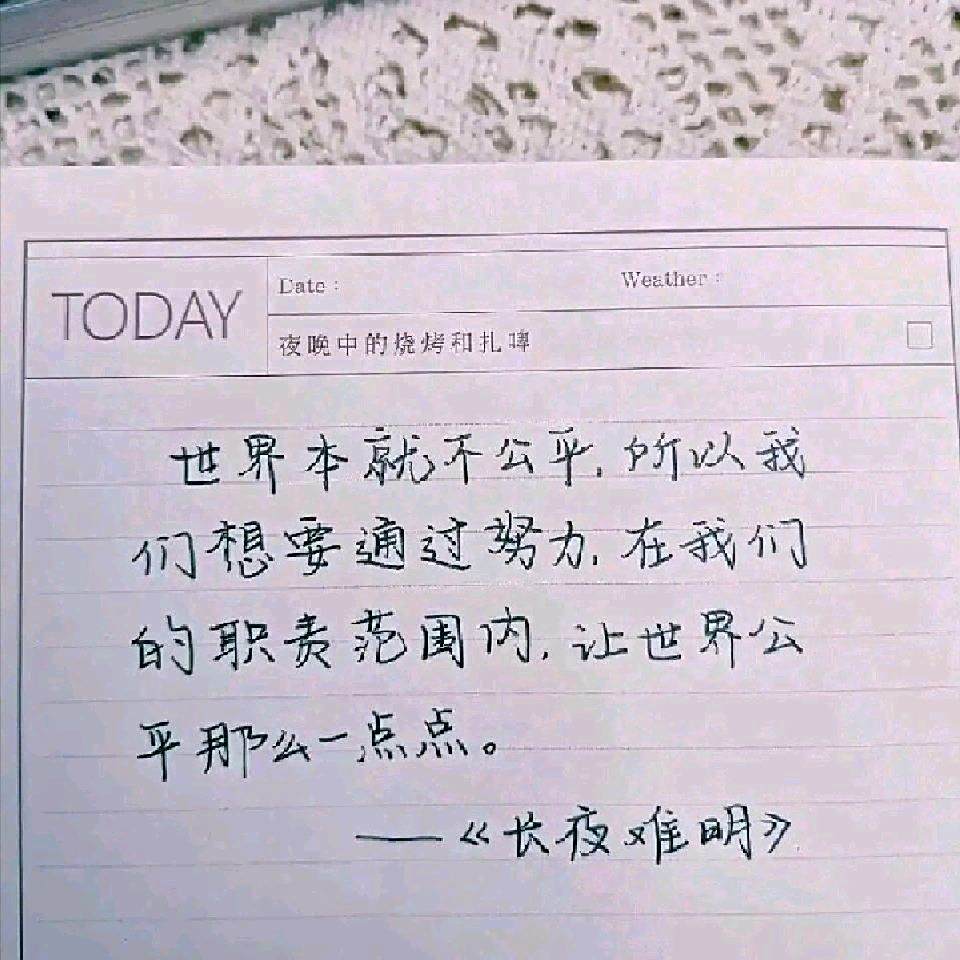 TODAY
Date :
Weather :
夜晚中的烧烤和扎啤
世界本就不公平,所以我
们想要通过努力,在我们
的职责范围内,让世界公
平那么一点点。
——《长夜难明》